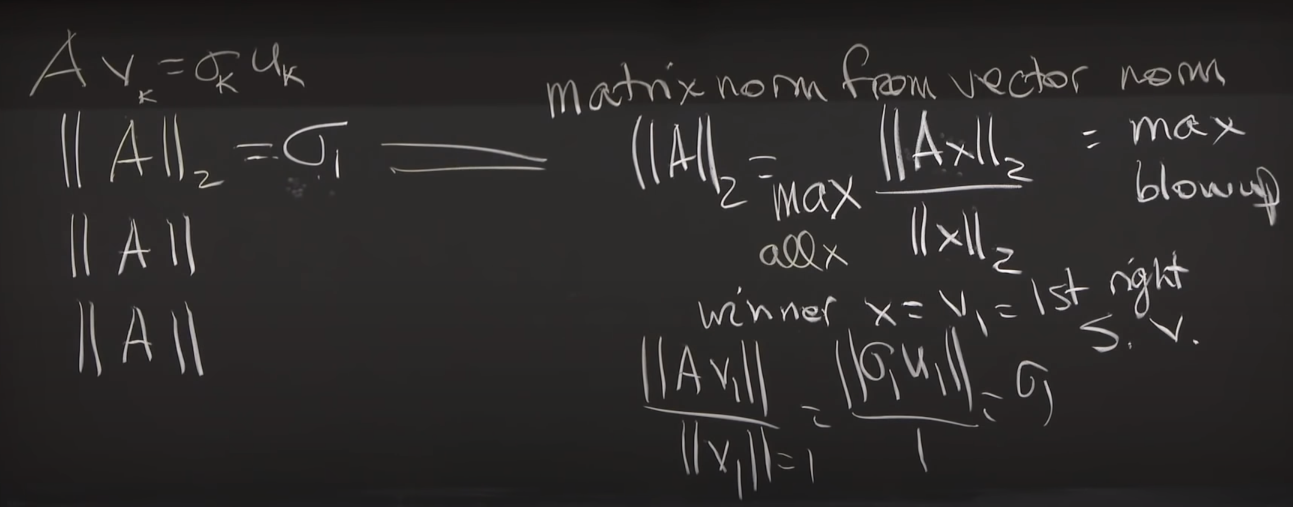 A vₖ = σₖ uₖ
matrix norm from vector norm
||A||₂ = σ₁
||A||₂ = max all x ||Ax||₂ / ||x||₂ = max blowup
||A||
||A||
winner x = v₁ = 1st right S.V.
||A v₁|| / ||v₁|| = 1 = ||σ₁ u₁|| / 1 = σ₁